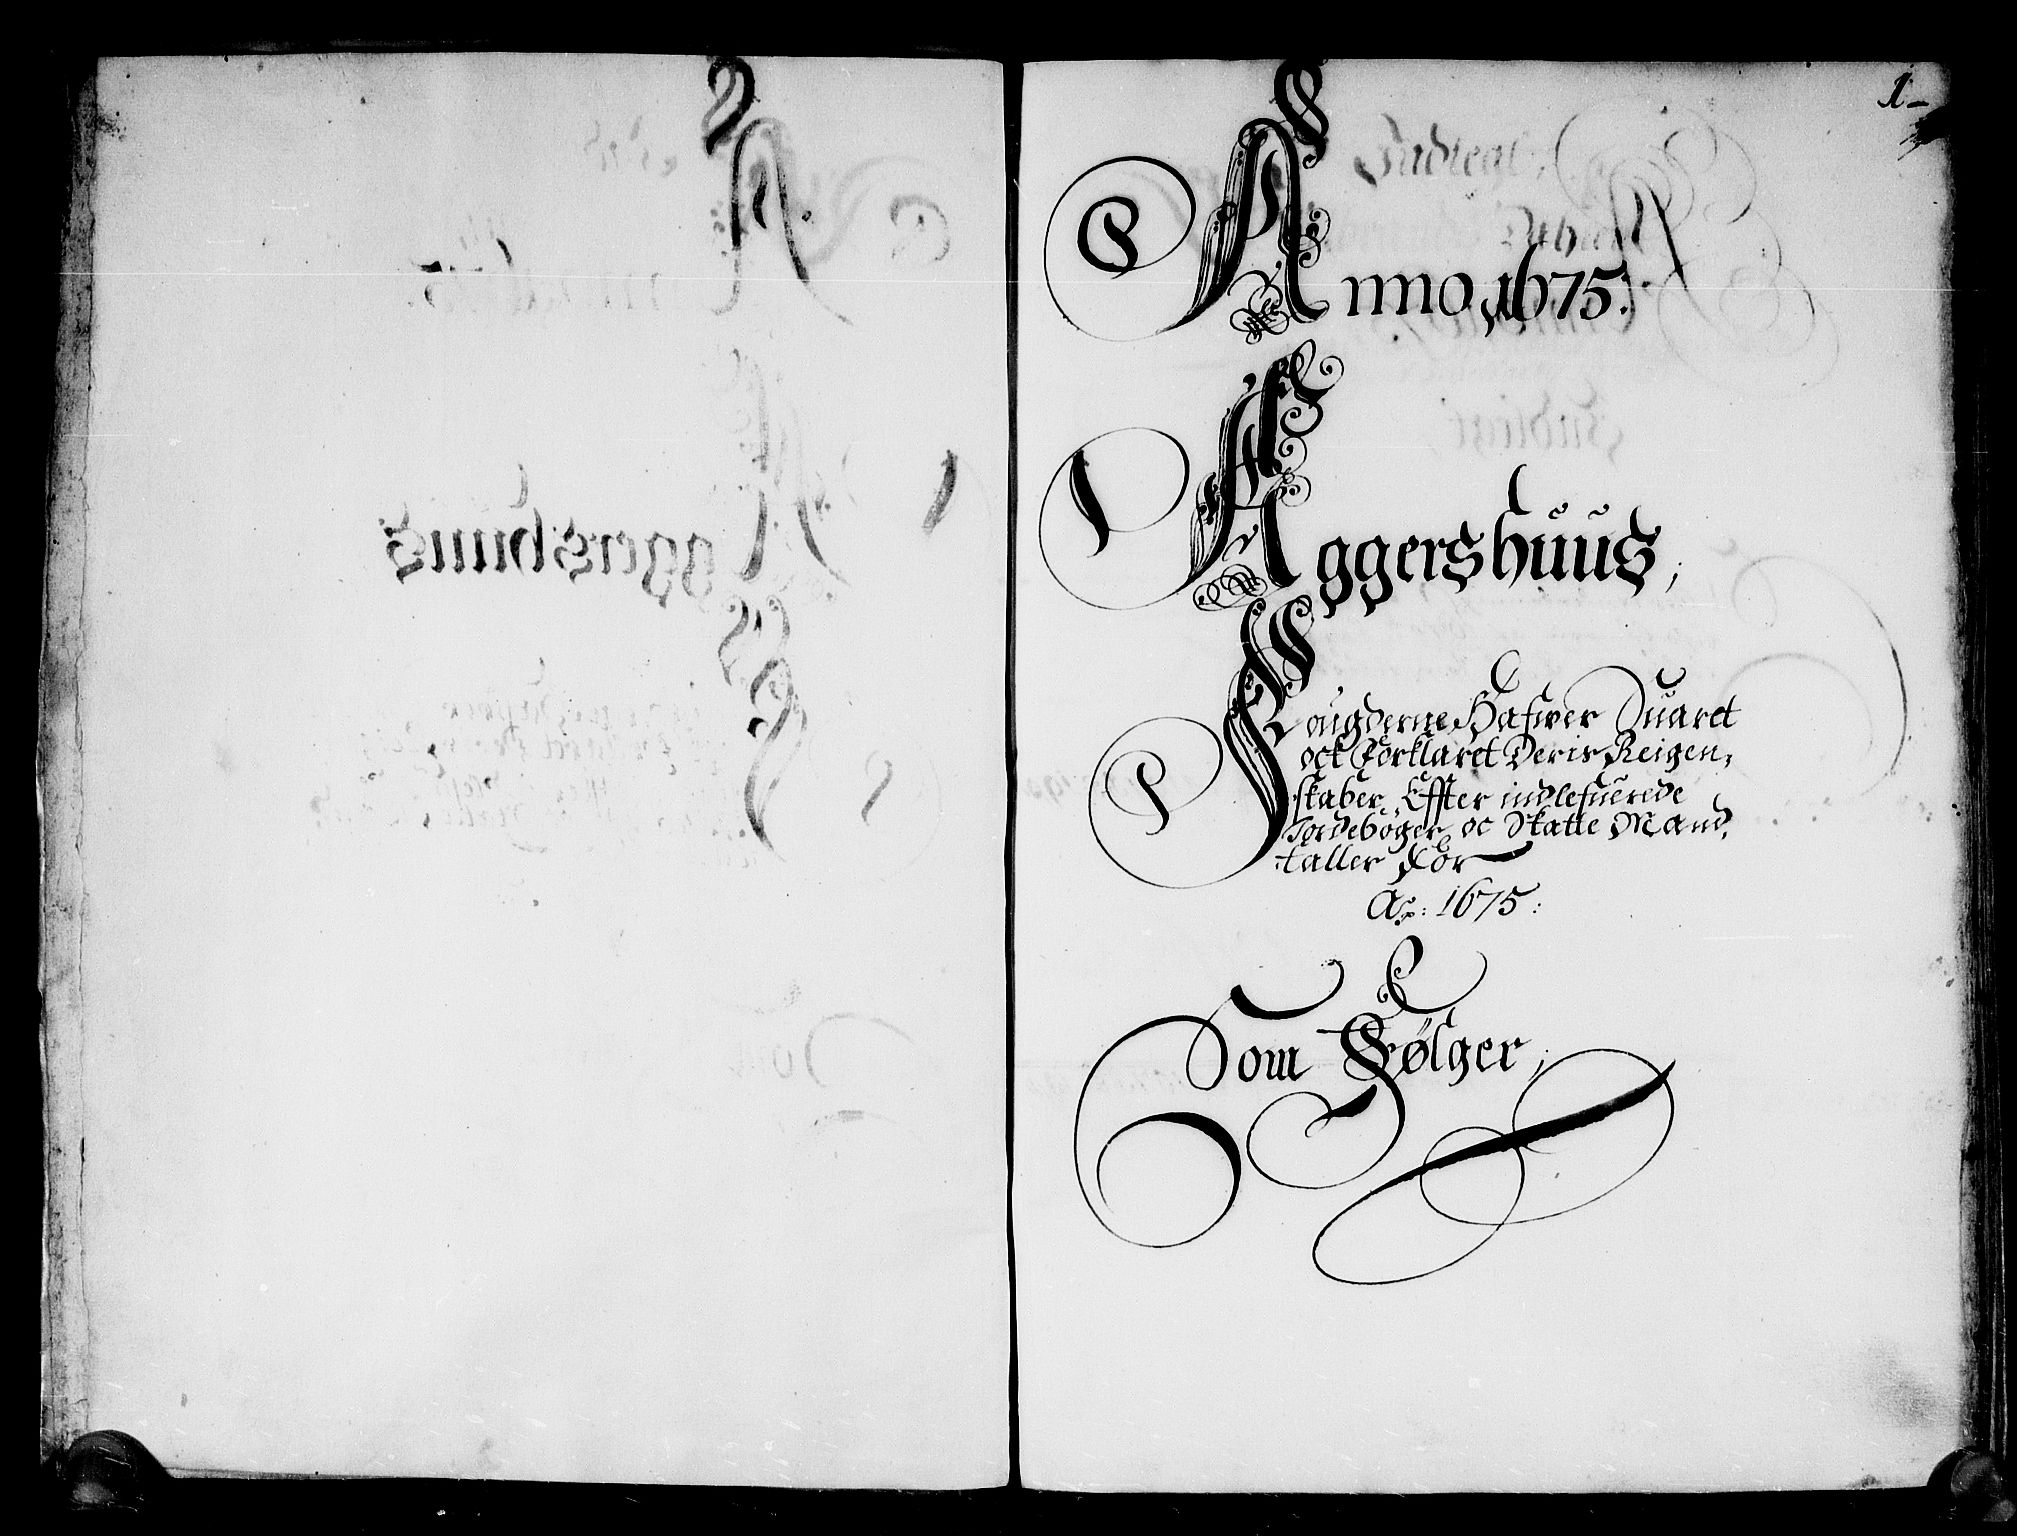 1
Anno 1675:
Aggershuus,
Fougderne Hafwer Suaret
ock Forklaret Deris Reigen,
skaber, Effter indlefuerede
Jordebøger oc Skatte Mand,
taller For
Ao: 1675:
Som Følger,